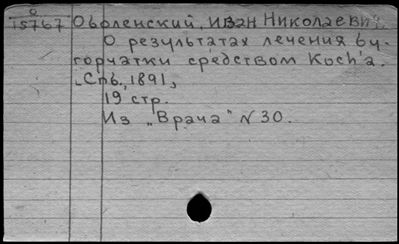 О
15767 Оболенский, Иван Николаевич.
О результатах лечения бу-
горчатки средством Koch'a.
Спб., 1891,
19 стр.
Из "Врача" N 30.